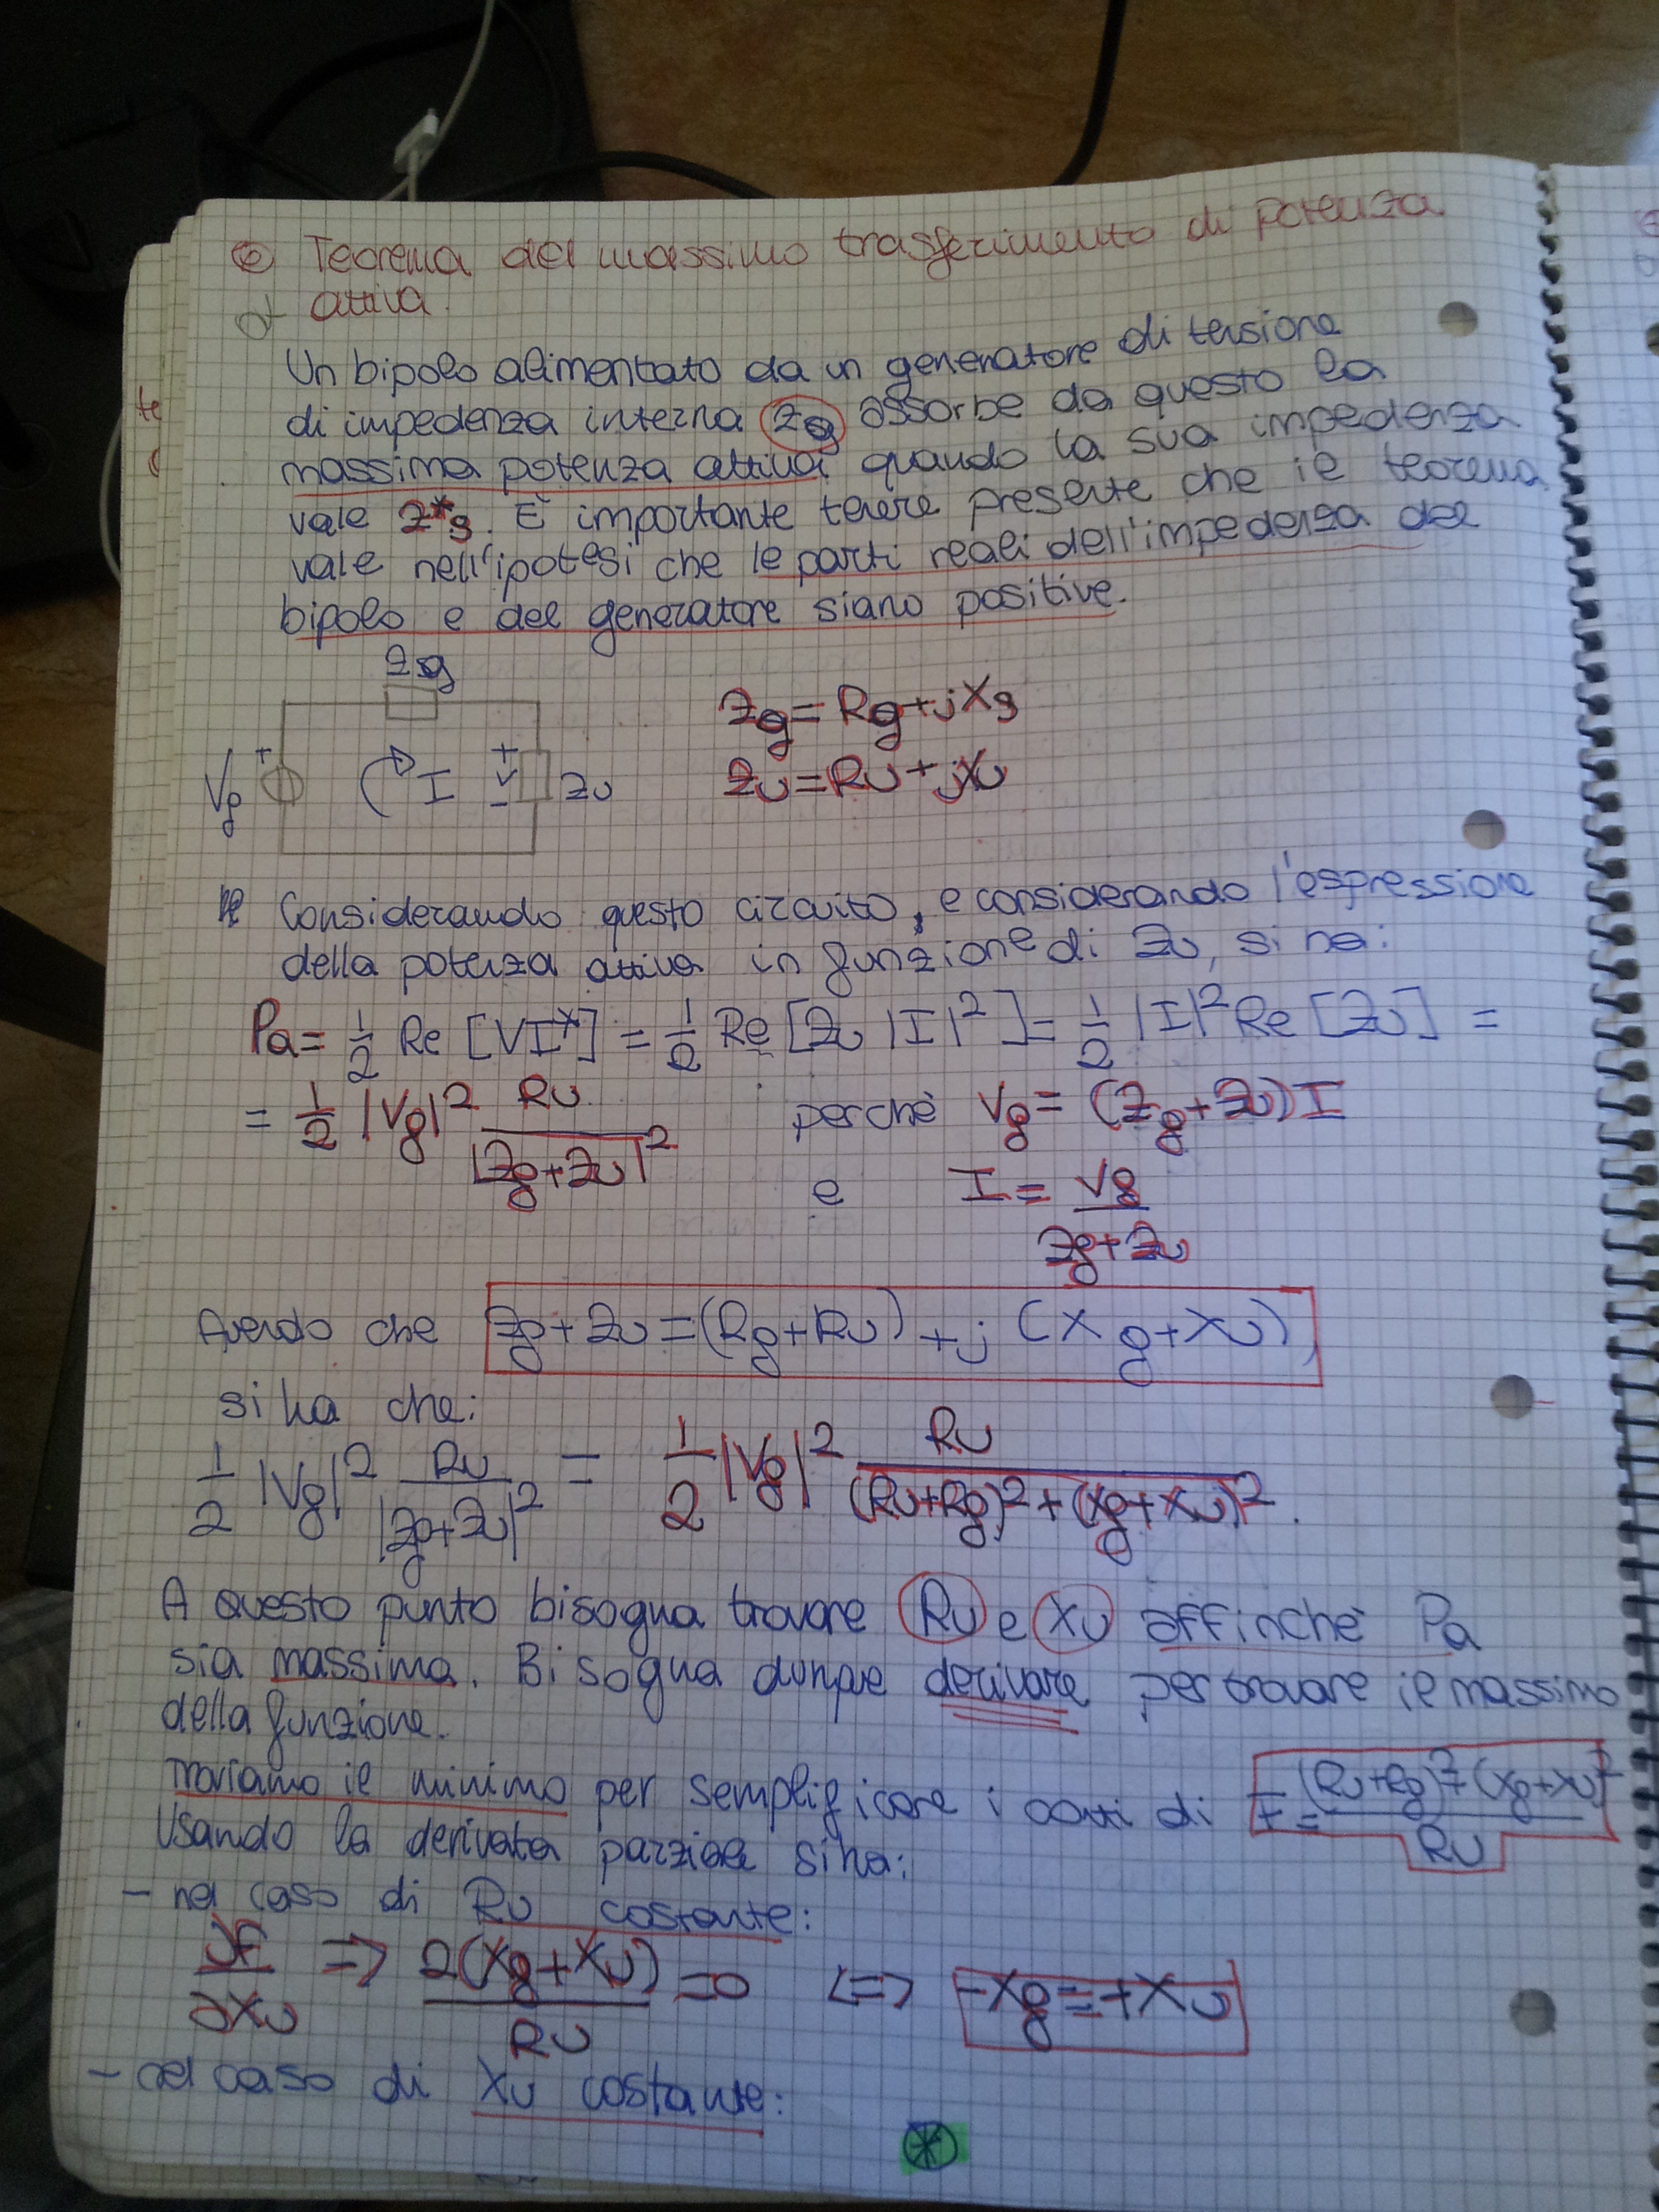 Teorema del massimo trasferimento di potenza
attiva.
Un bipolo alimentato da un generatore di tensione
di impedenza interna Zg assorbe da questo la
massima potenza attiva, quando la sua impedenza
vale Z*g. È importante tenere presente che il teorema
vale nell'ipotesi che le parti reali dell'impedenza del
bipolo e del generatore siano positive.
Zg
Zg = Rg + jXg
Vg + I + V - Zu
Zu = Ru + jXu
Considerando questo circuito, e considerando l'espressione
della potenza attiva in funzione di Zu, si ha:
Pa = 1/2 Re [VI*] = 1/2 Re [Zu |I|²] = 1/2 |I|² Re [Zu] =
= 1/2 |Vg|² Ru/|Zg+Zu|² perchè Vg = (Zg+Zu)I
e I = Vg/Zg+Zu
Avendo che Zg+Zu = (Rg+Ru) + j (Xg+Xu)
si ha che:
1/2 |Vg|² Ru/|Zg+Zu|² = 1/2 |Vg|² Ru/(Ru+Rg)²+(Xg+Xu)².
A questo punto bisogna trovare Ru e Xu affinchè Pa
sia massima. Bisogna dunque derivare per trovare il massimo
della funzione.
Troviamo il minimo per semplificare i conti di F = (Ru+Rg)²+(Xg+Xu)²/Ru
Usando la derivata parziale si ha:
- nel caso di Ru costante:
∂F/∂Xu => 2(Xg+Xu)/Ru = 0 <=> -Xg = +Xu
- nel caso di Xu costante:
*